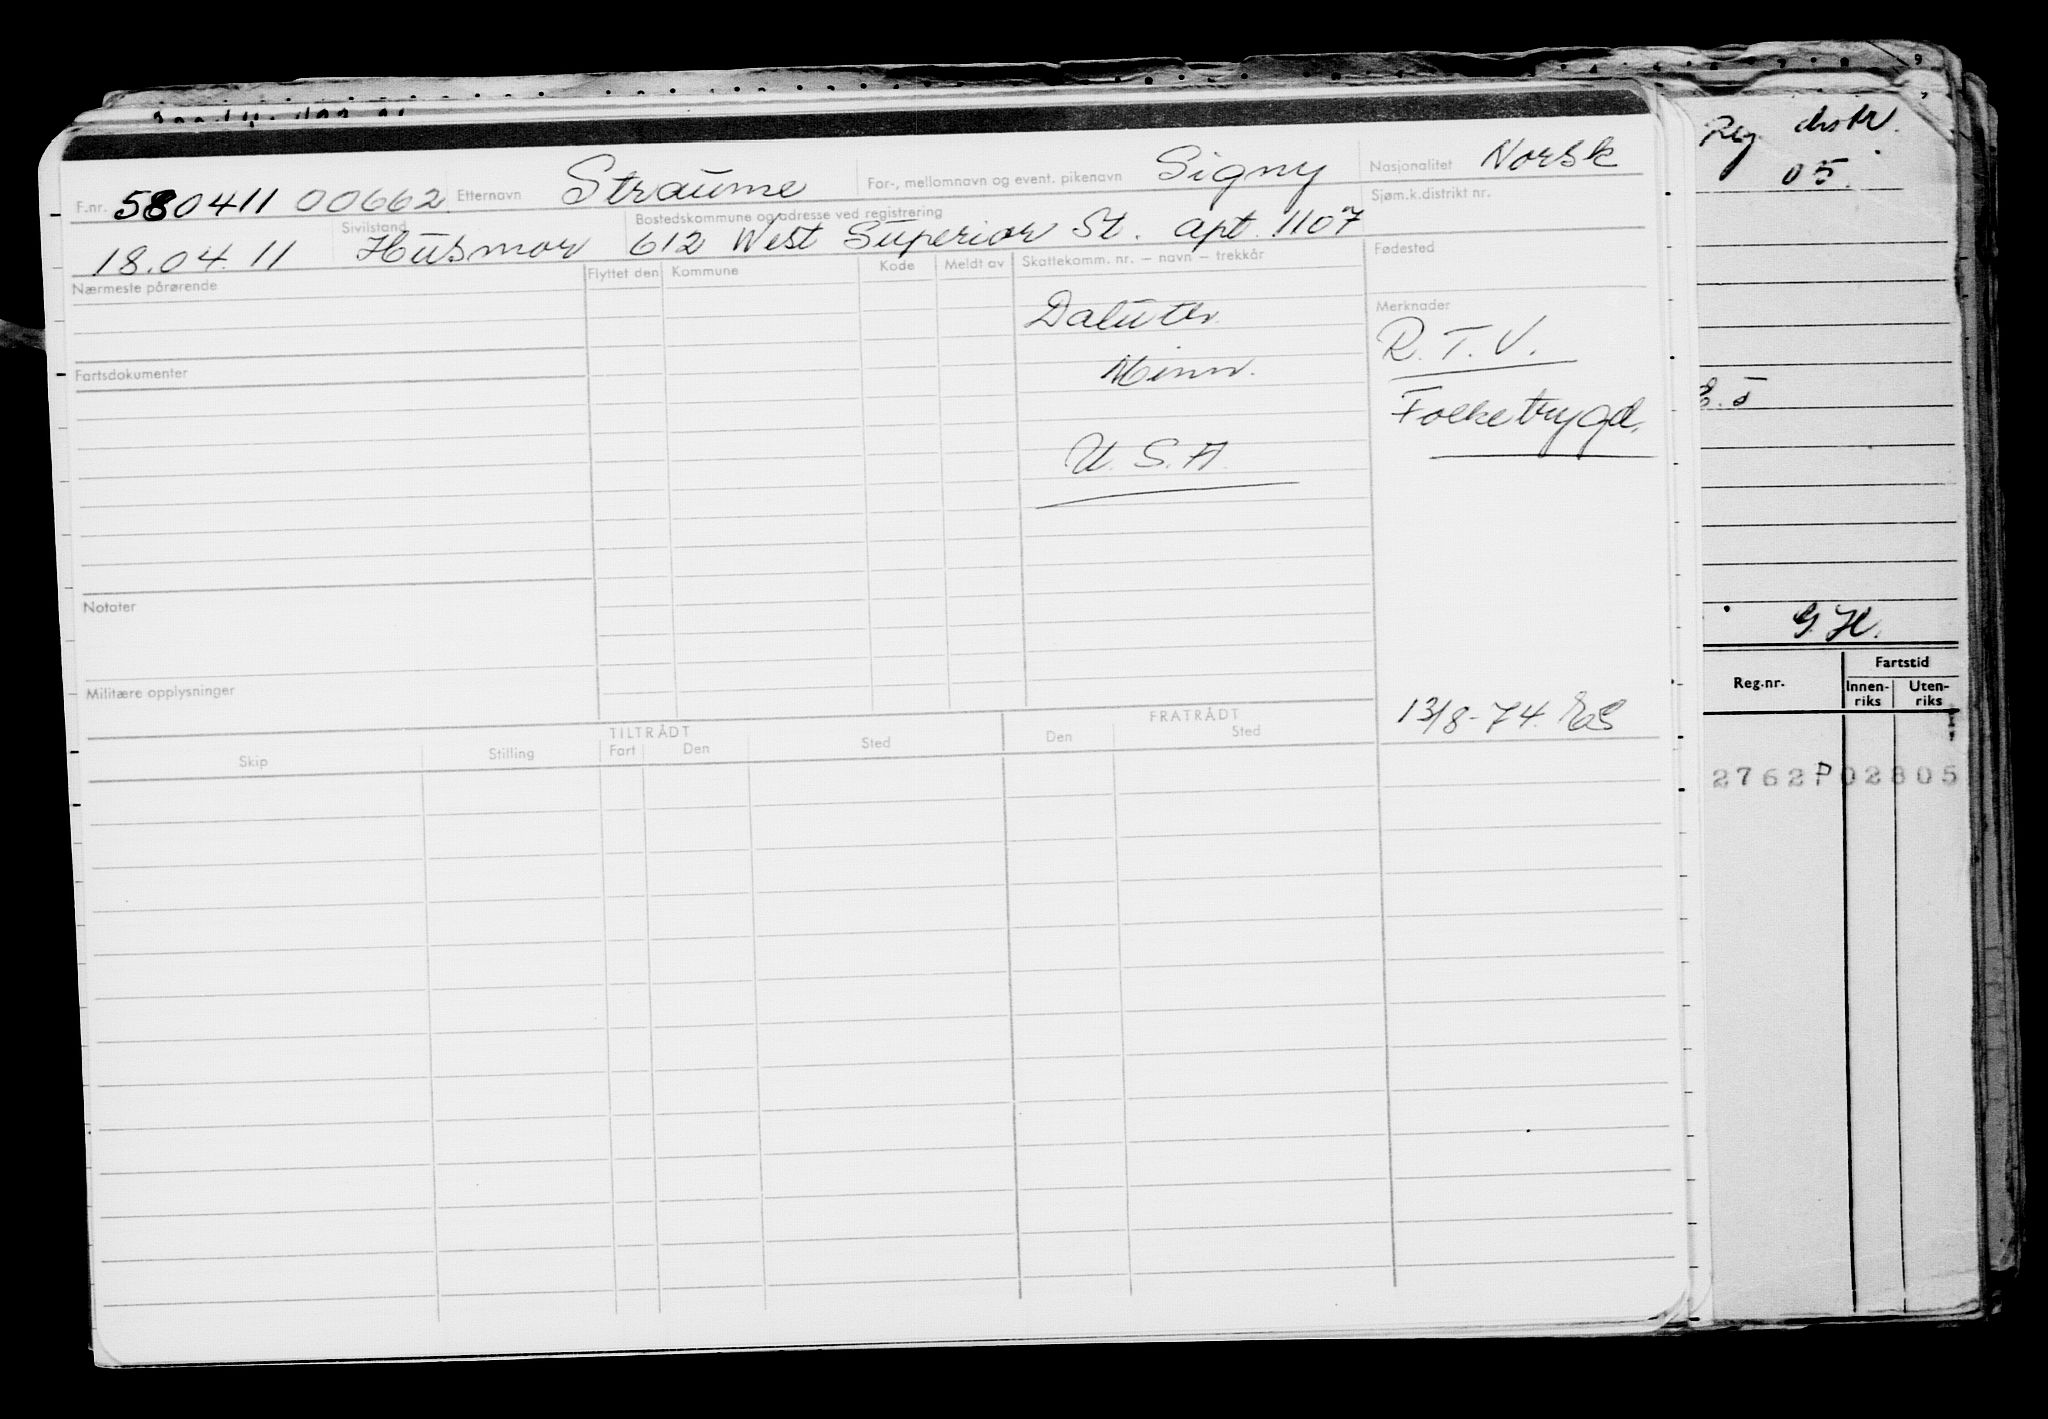 F.nr. 580411 00662 Etternavn Straume For-, mellomnavn og event. pikenavn Signy Nasjonalitet Norsk
18.04.11 Sivilstand Husmor Bostedskommune og adresse ved registrering 612 West Superior St. apt. 1107 Sjøm.k.distrikt nr.
Nærmeste pårørende Flyttet den Kommune Kode Meldt av Skattekomm. nr. – navn – trekkår Fødested
Daluth Merknader
Minn. R.T.V.
Fartsdokumenter
U.S.A. Folketrygd.
Notater
Militære opplysninger
13/8-74. ES
TILTRÅDT FRATRÅDT
Skip Stilling Fart Den Sted Den Sted
Reg. distr.
05.
G.H.
Reg.nr. Fartstid
Innen-riks Uten-riks
2762P02805